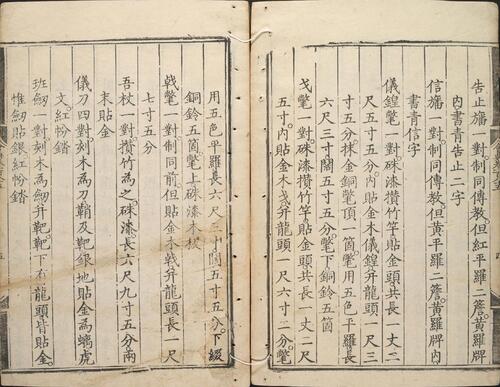 告止旛一對制同傳教但紅平羅二簷黃羅牌
內書青告止二字
信旛一對制同傳教但黃平羅二簷黃羅牌內
書青信字
儀鍠氅一對硃漆攢竹竿貼金頭共長一丈二
尺五寸五分內貼金木儀鍠并龍頭一尺三
寸五分抹金銅氅頂一箇氅用五色平羅長
六尺三寸闊五寸五分氅下銅鈴五箇
戈氅一對硃漆攢竹竿貼金頭共長一丈二尺
五寸內貼金木戈并龍頭一尺六寸二分氅
用五色平羅長六尺三寸闊五寸五分下綴
銅鈴五箇氅上硃漆木板
戟氅一對制同前但貼金木戟并龍頭長一尺
七寸五分
吾杖一對攢竹為之硃漆長六尺九寸五分兩
末貼金
儀刀四對刻木為刀鞘及靶銀地貼金為螭虎
文紅粉錔
班劒一對刻木為劒并靶靶下有龍頭皆貼金
惟劒貼銀紅粉錔